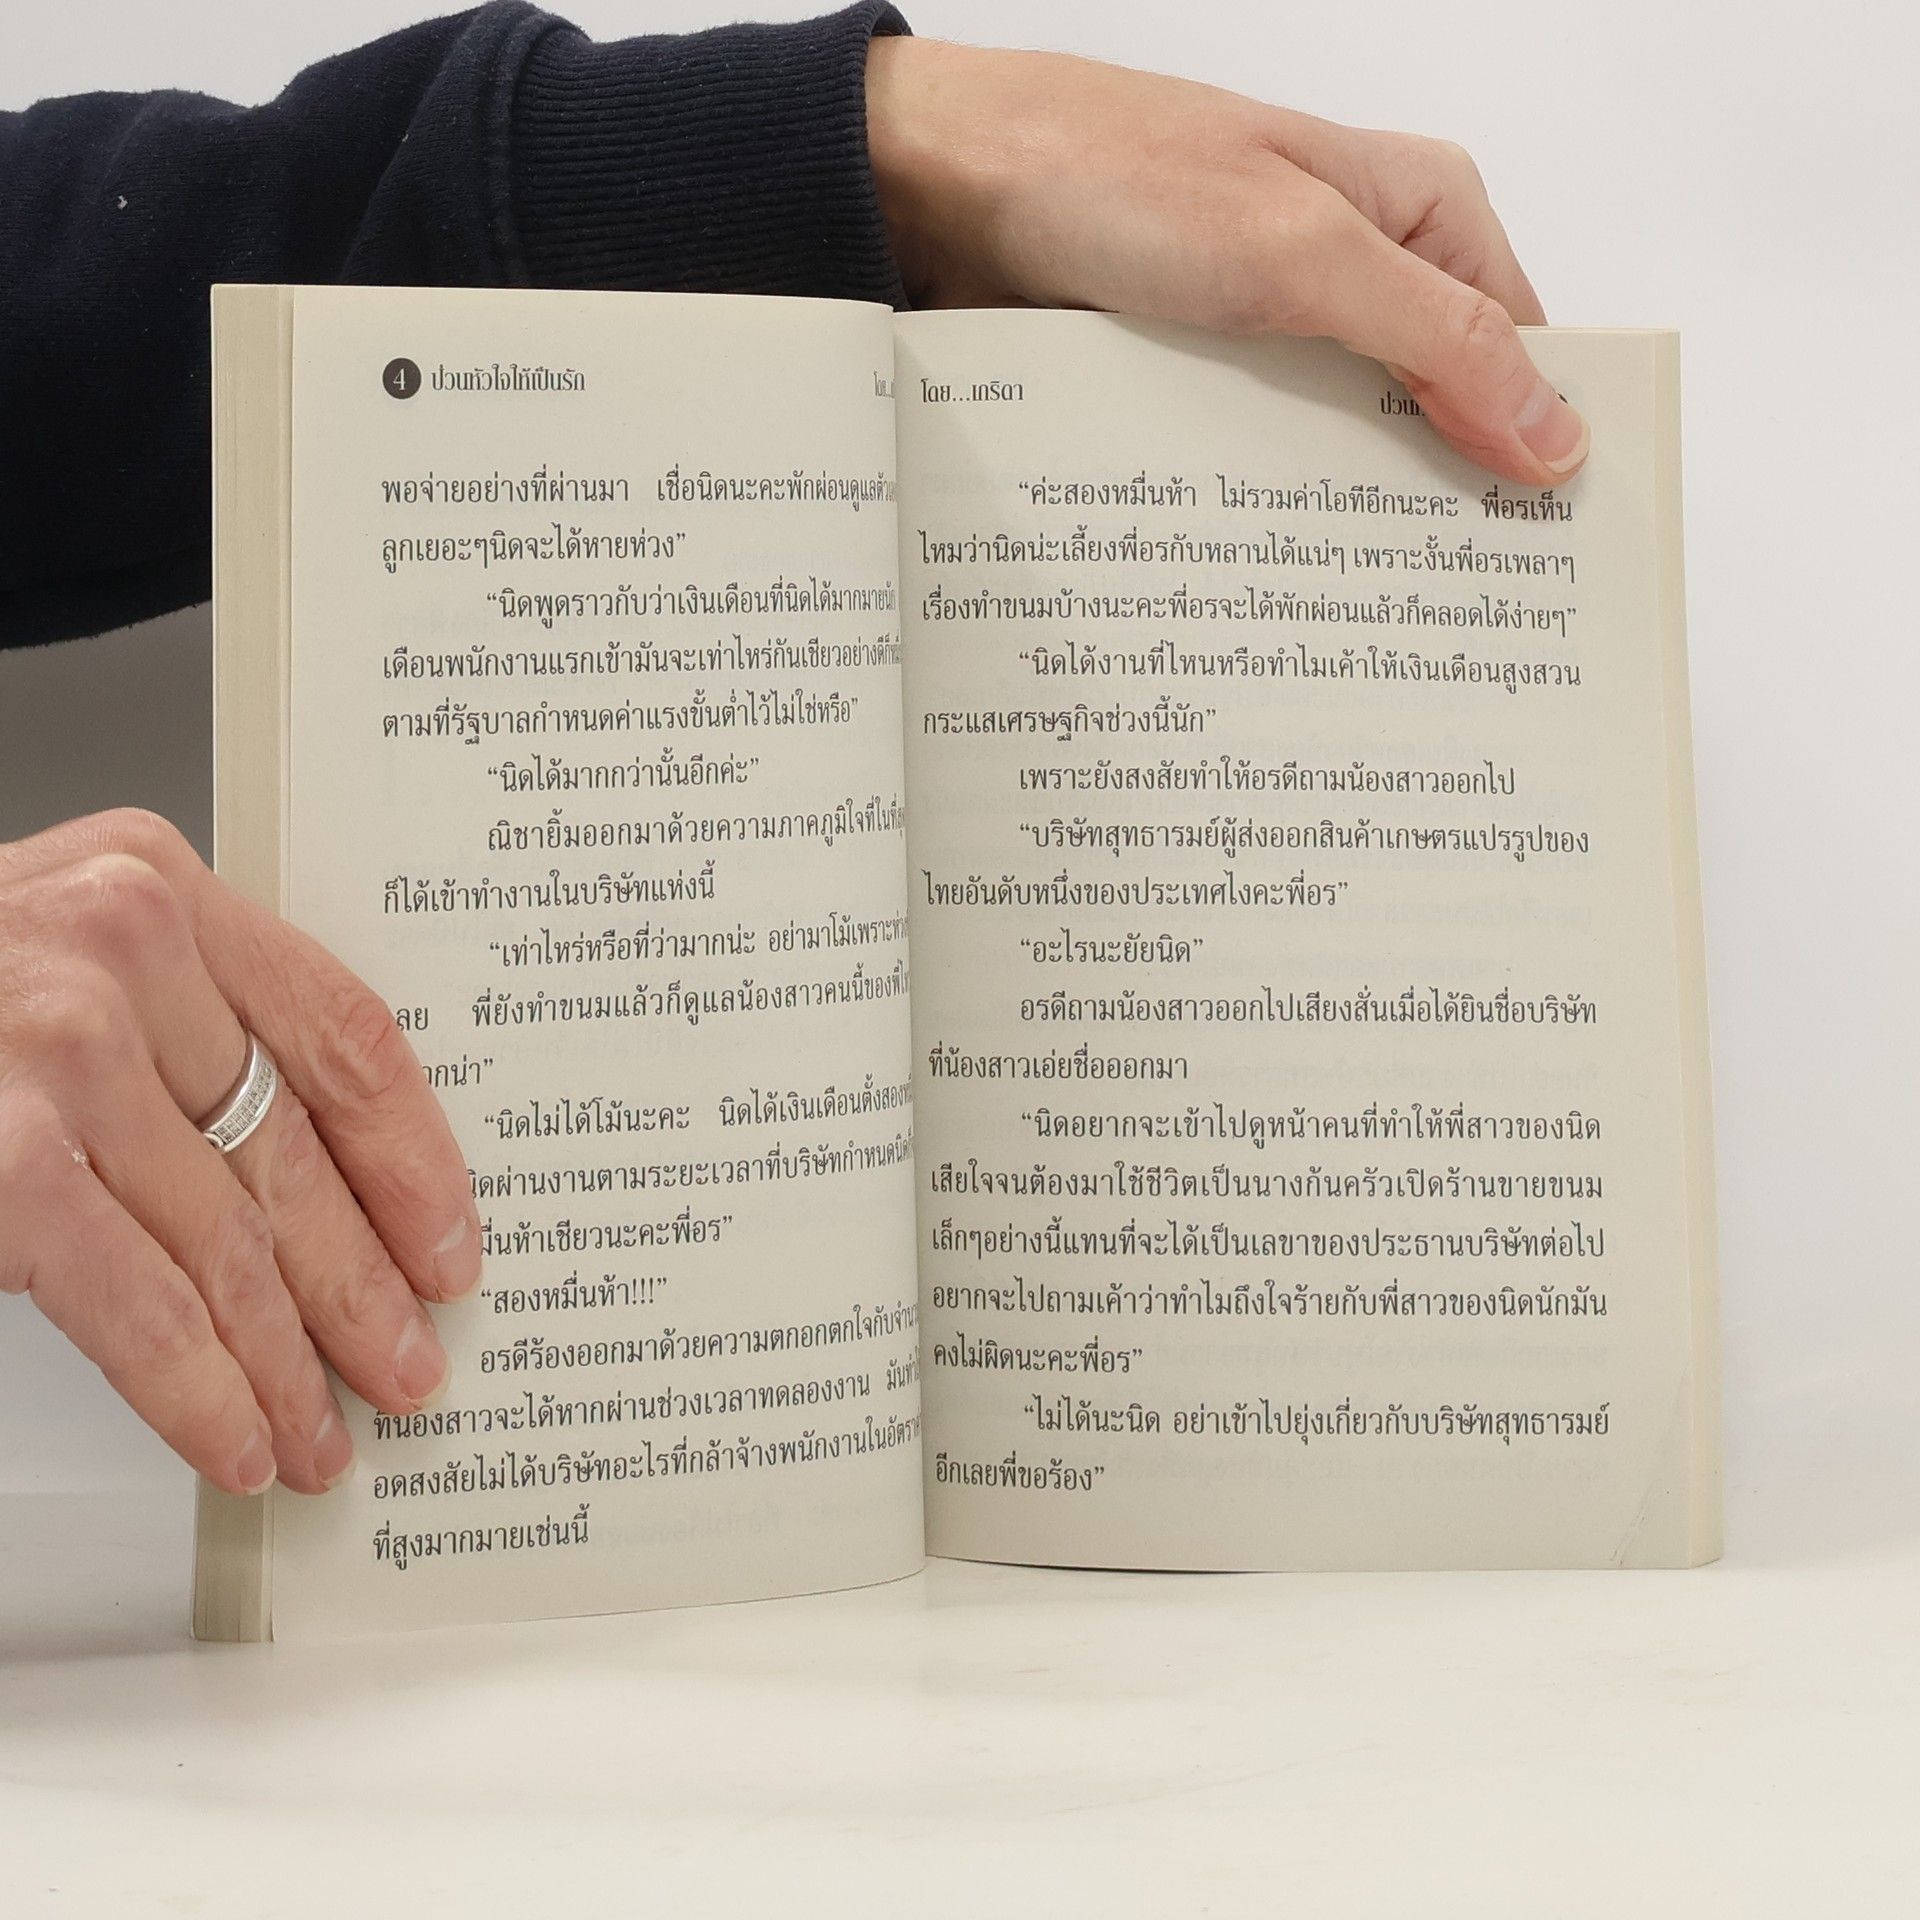 4 ป่วนหัวใจให้เป็นรัก
พอจ่ายอย่างที่ผ่านมา เชื่อนิดนะคะพักผ่อนดูแล
ลูกเยอะๆนิดจะได้หายห่วง”
“นิดพูดราวกับว่าเงินเดือนที่นิดได้มากมาย
เดือนพนักงานแรกเข้ามันจะเท่าไหร่กันเชียวอย่างดีก็
ตามที่รัฐบาลกำหนดค่าแรงขั้นต่ำไว้ไม่ใช่หรือ”
“นิดได้มากกว่านั้นอีกค่ะ”
ณิชายิ้มออกมาด้วยความภาคภูมิใจที่ในที่
ก็ได้เข้าทำงานในบริษัทแห่งนี้
“เท่าไหร่หรือที่ว่ามากน่ะ อย่ามาโม้เพราะ
พี่ยังทำขนมแล้วก็ดูแลน้องสาวคนนี้ของพี่
“นิดไม่ได้โม้นะคะ นิดได้เงินเดือนตั้งสอง
ผ่านงานตามระยะเวลาที่บริษัทกำหนด
ห้าเชียวนะคะพี่อร”
“สองหมื่นห้า!!!”
อรดีร้องออกมาด้วยความตกอกตกใจกับ
ที่น้องสาวจะได้หากผ่านช่วงเวลาทดลองงาน
อดสงสัยไม่ได้บริษัทอะไรที่กล้าจ้างพนักงานใน
ที่สูงมากมายเช่นนี้
โดย...เกริดา
“ค่ะสองหมื่นห้า ไม่รวมค่าโอทีอีกนะคะ พี่อรเห็น
ไหมว่านิดน่ะเลี้ยงพี่อรกับหลานได้แน่ๆ เพราะงั้นพี่อรเพลาๆ
เรื่องทำขนมบ้างนะคะพี่อรจะได้พักผ่อนแล้วก็คลอดได้ง่ายๆ”
“นิดได้งานที่ไหนหรือทำไมเค้าให้เงินเดือนสูงสวน
กระแสเศรษฐกิจช่วงนี้นัก”
เพราะยังสงสัยทำให้อรดีถามน้องสาวออกไป
“บริษัทสุทธารมย์ผู้ส่งออกสินค้าเกษตรแปรรูปของ
ไทยอันดับหนึ่งของประเทศไงคะพี่อร”
“อะไรนะยัยนิด”
อรดีถามน้องสาวออกไปเสียงสั่นเมื่อได้ยินชื่อบริษัท
ที่น้องสาวเอ่ยชื่อออกมา
“นิดอยากจะเข้าไปดูหน้าคนที่ทำให้พี่สาวของนิด
เสียใจจนต้องมาใช้ชีวิตเป็นนางก้นครัวเปิดร้านขายขนม
เล็กๆอย่างนี้แทนที่จะได้เป็นเลขาของประธานบริษัทต่อไป
อยากจะไปถามเค้าว่าทำไมถึงใจร้ายกับพี่สาวของนิดนักมัน
คงไม่ผิดนะคะพี่อร”
“ไม่ได้นะนิด อย่าเข้าไปยุ่งเกี่ยวกับบริษัทสุทธารมย์
อีกเลยพี่ขอร้อง”